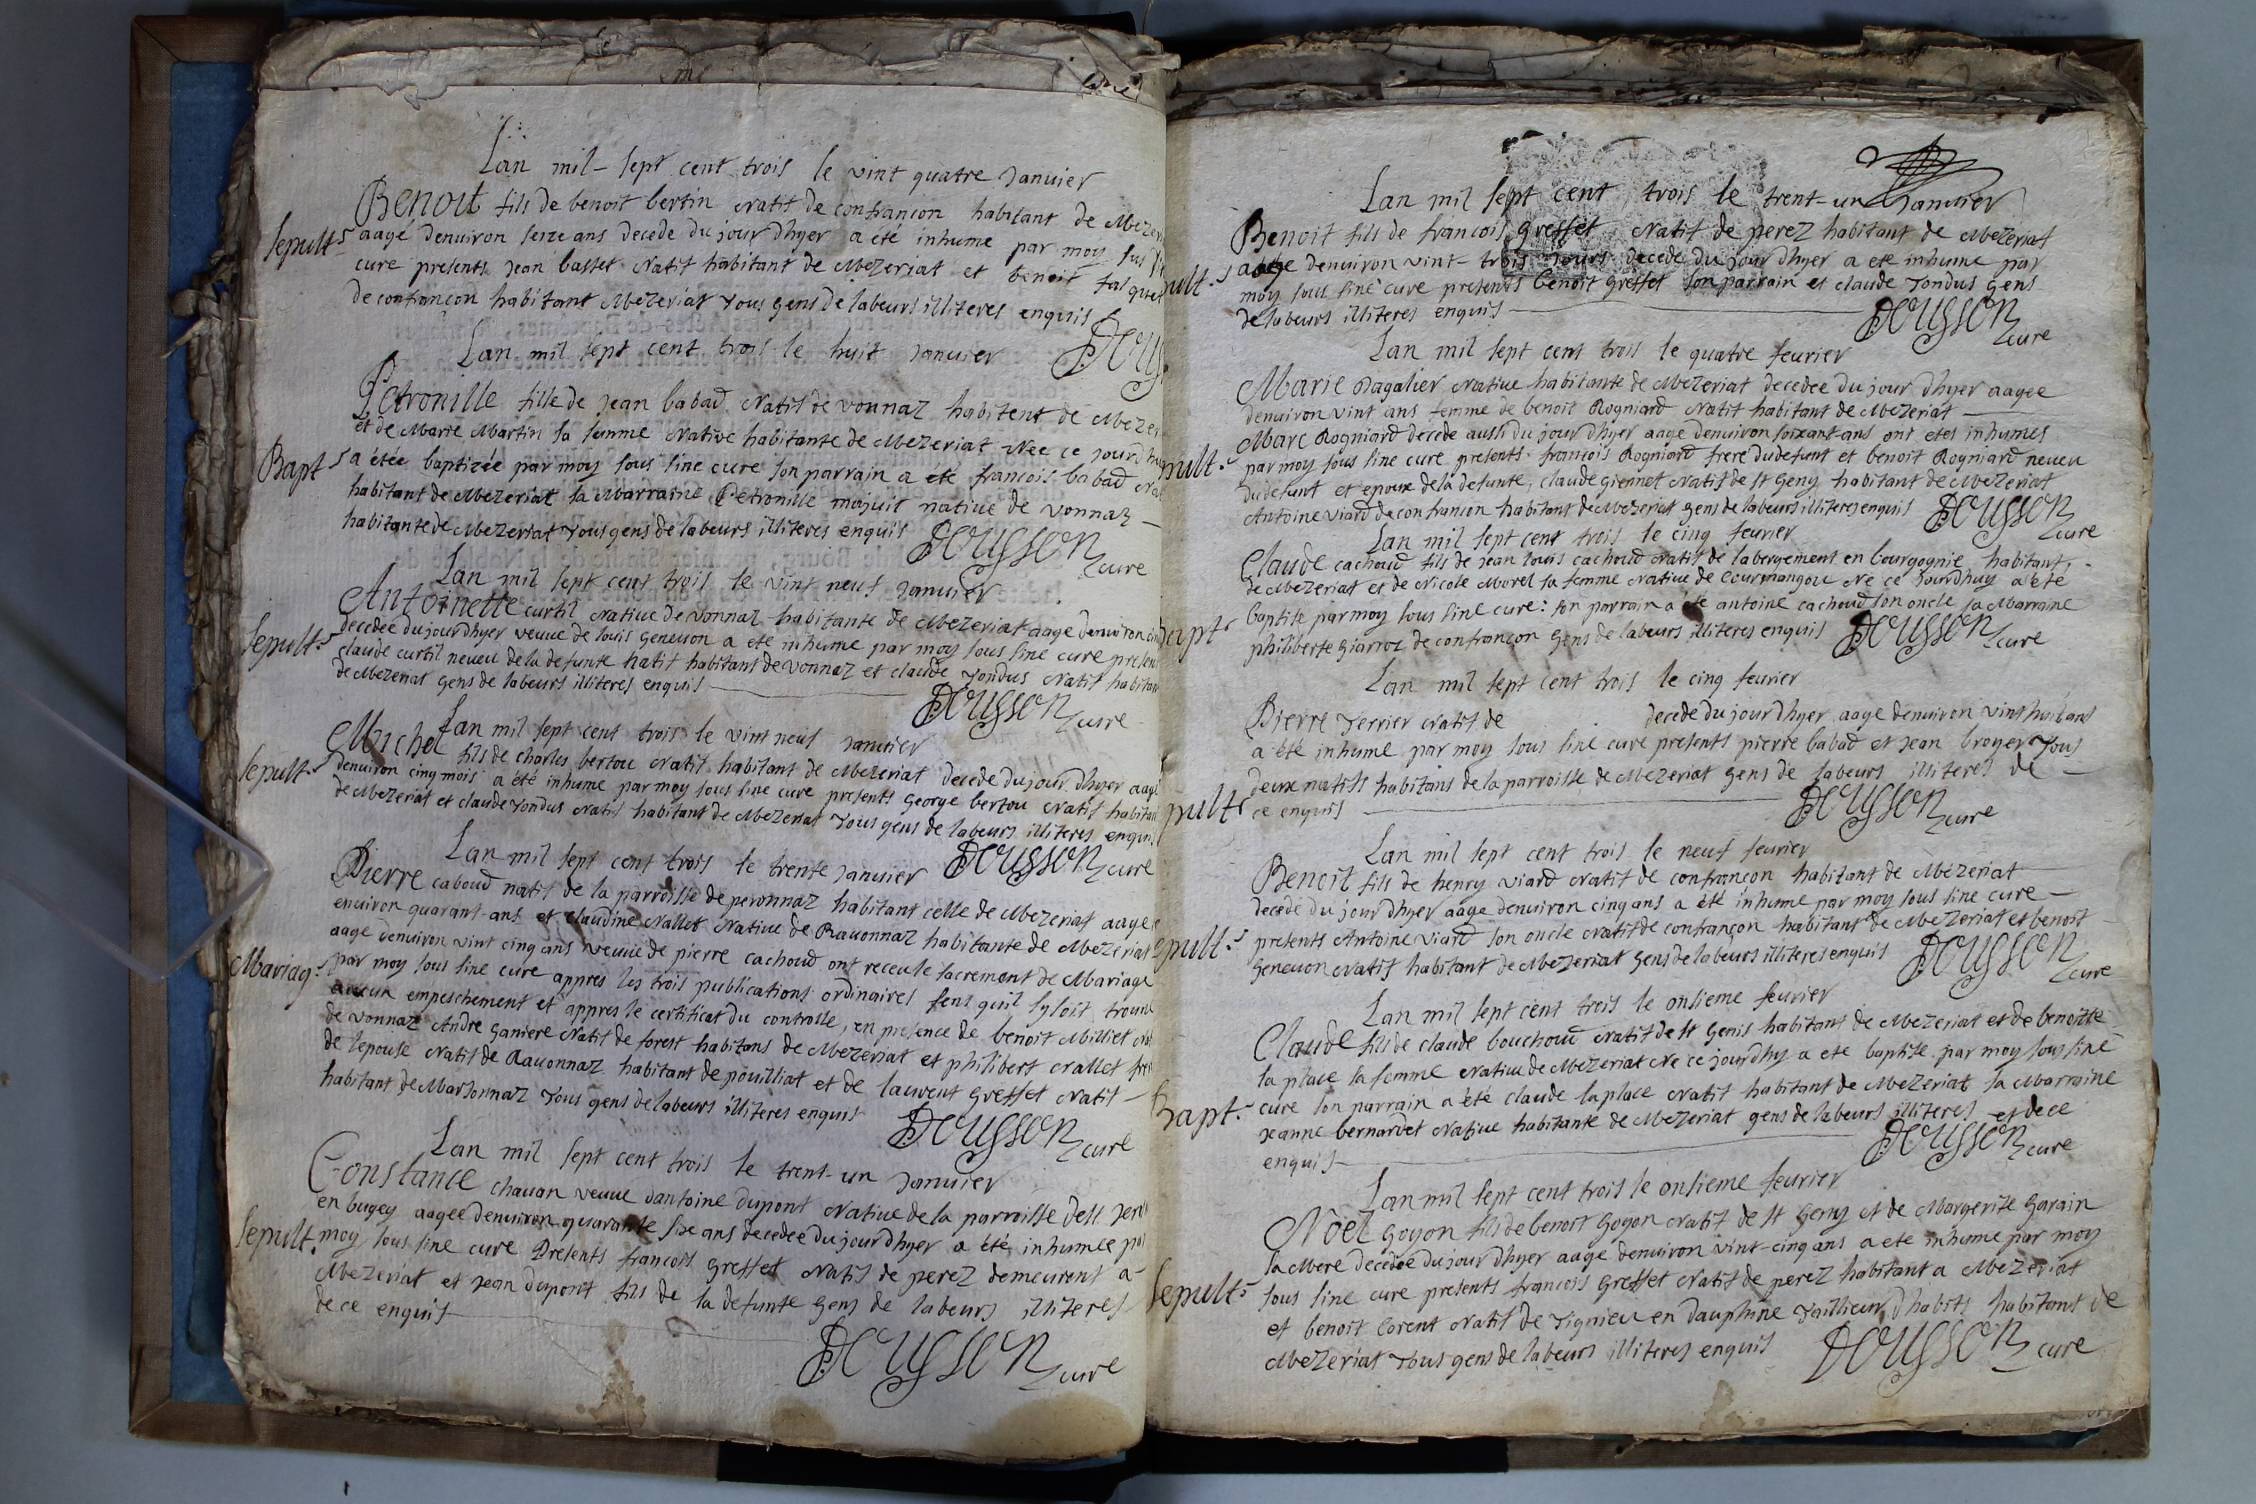 Lan mil sept cent trois le vint quatre Janvier
Benoit fils de benoit bertin Natif de confrancon habitant de Mezeri
Sepult.s aagé denuiron seize ans decede du jour dhyer a été inhume par moy sus
cure presents Jean basset Natif habitant de Mezeriat et benoit
de confrançon habitant Mezeriat Tous gens de labeurs illiteres enquis
Lan mil sept cent trois le huit Janvier
Petronille fille de Jean babad Natif de vonnaz habitent de Mezer
et de Marie Martin sa femme Native habitante de Mezeriat Née ce jourd
Bapt.s a étée baptizée par moy sous sine cure son parrain a été francois babad
habitant de Mezeriat sa Marraine Petronille majuit native de vonnaz
habitante de Mezeriat Tous gens de labeurs illiteres enquis Dousson cure
Lan mil sept cent trois le vint neuf Janvier
Antoinette curtil Natiue de vonnaz habitante de Mezeriat aage denuiron
decedee du jour dhyer veuue de louis geneuon a ete inhume par moy sous sine cure presen
Sepult.s claude curtil neueu de la defunte natif habitant de vonnaz et claude Tondus Natif habitan
de Mezeriat gens de labeurs illiteres enquis Dousson cure
Lan mil sept cent trois le vint neuf Janvier
Michel fils de charles bertou Natif habitant de Mezeriat decede du jour dhyer aagé
Sepult.s denuiron cinq mois a été inhume par moy sous sine cure presents george bertou Natif habitan
de Mezeriat et claude Tondus Natif habitant de Mezeriat Tous gens de labeurs illiteres enquis
Dousson cure
Lan mil sept cent trois le trente Janvier
Pierre caboud natif de la parroisse de peronnaz habitant celle de Mezeriat aage
enuiron quarant-ans et claudine Nallet Natiue de Rauonnaz habitante de Mezeriat
aage denuiron vint cinq ans veuue de pierre cachoud ont receu le sacrement de Mariage
Mariag.s par moy sous sine cure appres les trois publications ordinaires sens quil sysoit trouué
aucun empeschement et appres le certificat du controlle, en presence de benoit Milliet
de vonnaz Andre ganiere Natif de forest habitans de Mezeriat et philibert Nallet
de lepouse Natif de Rauonnaz habitant de pouilliat et de laurent greffet Natif
habitant de Marsonnaz Tous gens de labeurs illiteres enquis Dousson cure
Lan mil sept cent trois le trent-un Janvier
Constance chauan veuue dantoine dupont Natiue de la parroisse de st
en bugey aagee denuiron quarante six ans decedee du jour dhyer a été inhumee par
Sepult.s moy sous sine cure Presents francois greffet Natif de perez demeurent a
Mezeriat et Jean dupont fils de la defunte gens de labeurs illiteres
de ce enquis
Dousson cure
Lan mil sept cent trois le trent-un Janvier
Benoit fils de francois greffet Natif de perez habitant de Mezeriat
pult.s aage denuiron vint-trois jours decede du jour dhyer a ete inhume par
moy sous sine cure presents benoit greffet son parrain et claude Tondus gens
de labeurs illiteres enquis Dousson cure
Lan mil sept cent trois le quatre feurier
Marie Dagalier Natiue habitante de Mezeriat decedee du jour dhyer aagee
denuiron vint ans femme de benoit Rogniard Natif habitant de Mezeriat
Marc Rogniard decede aussi du jour dhyer aage denuiron soixant-ans ont etes inhumes
pult.s par moy sous sine cure presents francois Rogniard frere du defunt et benoit Rogniard neueu
du defunt et epoux de la defunte, claude giennet Natif de st geny habitant de Mezeriat
Antoine viard de confrancon habitant de Mezeriat gens de labeurs illiteres enquis Dousson cure
Lan mil sept cent trois le cinq feurier
Claude cachoud fils de Jean louis cachoud Natif de labergement en bourgognie habitant
de Mezeriat et de Nicole Morel sa femme Natiue de Courmangou Ne ce Jourdhuy a été
bapt.s baptise par moy sous sine cure: son parrain a été antoine cachoud son oncle sa Marraine
philiberte giarroz de confrançon gens de labeurs illiteres enquis Dousson cure
Lan mil sept cent trois le cinq feurier
Pierre Terrier Natif de decede du jour dhyer aage denuiron vint huit ans
a été inhume par moy sous sine cure presents pierre babad et Jean broyer Tous
deux natifs habitans de la parroisse de Mezeriat gens de labeurs illiteres de
pult.s ce enquis Dousson cure
Lan mil sept cent trois le neuf feurier
Benoit fils de henry viard Natif de confrançon habitant de Mezeriat
decede du jour dhyer aage denuiron cinq ans a été inhume par moy sous sine cure
epult.s presents Antoine viard son oncle Natif de confrançon habitant de Mezeriat et benoit
geneuon Natif habitant de Mezeriat gens de labeurs illiteres enquis Dousson cure
Lan mil sept cent trois le onsieme feurier
Claude fils de claude bouchoud Natif de st genis habitant de Mezeriat et de benoite
la place sa femme Natiue de Mezeriat Ne ce jourdhy a ete baptise par moy sous sine
Bapt.s cure son parrain a été claude la place Natif habitant de Mezeriat sa Marraine
Jeanne bernardet Natiue habitante de Mezeriat gens de labeurs illiteres et de ce
enquis Dousson cure
Lan mil sept cent trois le onsieme feurier
Noël goyon fils de benoit goyon Natif de st geny et de Margerite garain
sa Mere decedée du jour dhyer aage denuiron vint-cinq ans a ete inhume par moy
Sepult.s sous sine cure presents francois greffet Natif de perez habitant a Mezeriat
et benoit lorent Natif de Tignieu en dauphine Tailleur d habits habitant de
Mezeriat Tous gens de labeurs illiteres enquis Dousson cure